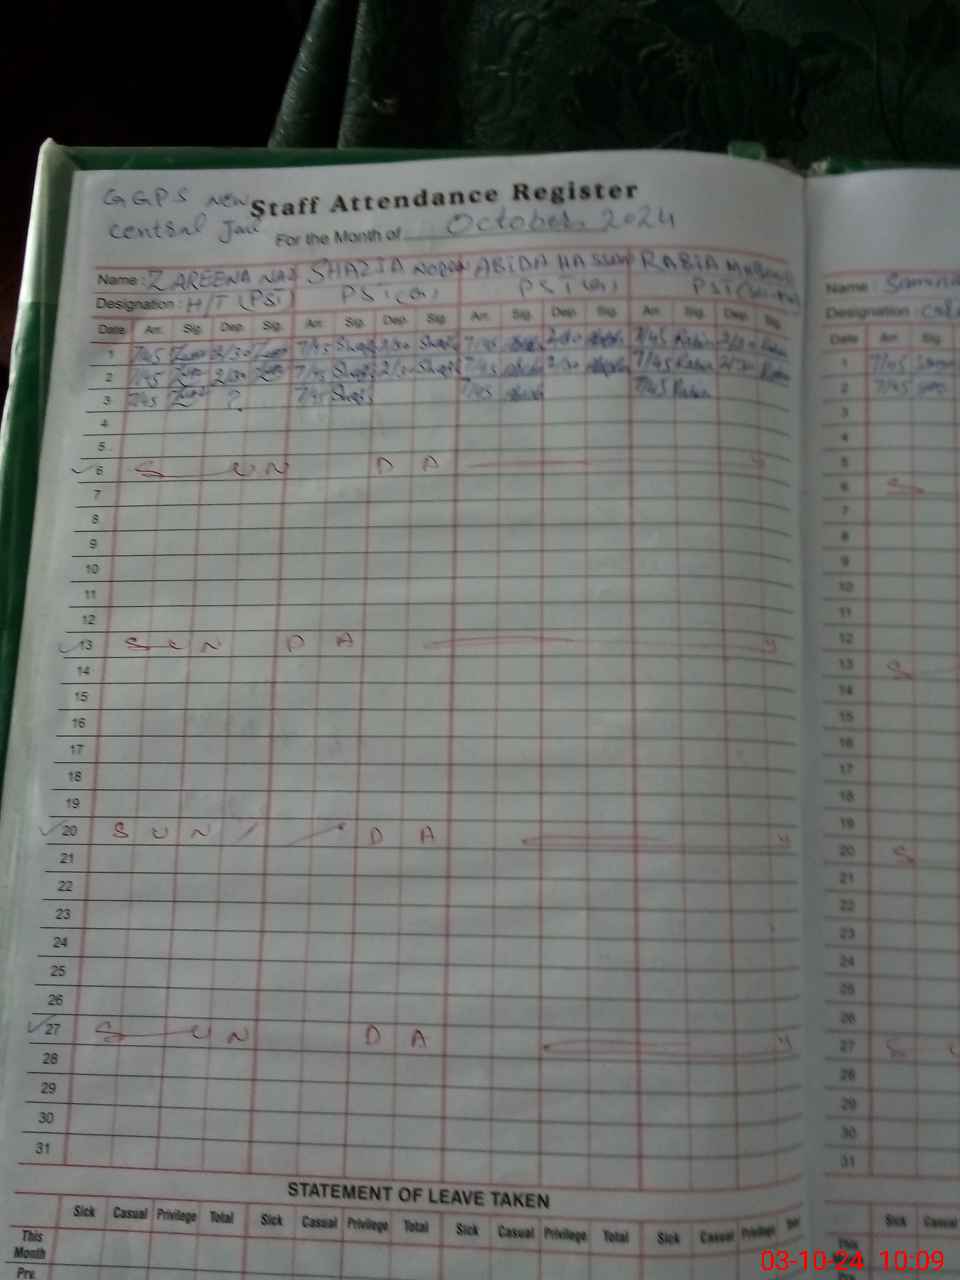 GGPS New
Staff Attendance Register
Central Jail
For the Month of October 2024
Name: ZAREENA NAZ SHAZIA NOREEN ABIDA HASSAN RABIA
Designation: H/T (PST) PST (G) PST (G) PST
Date Arr. Sig. Dep. Sig. Arr. Sig. Dep. Sig. Arr. Sig. Dep. Sig. Arr. Sig. Dep. Sig.
1 7/45 2/30 7/45 2/30 7/45 2/30 7/45 Rabia 2/30 Rabia
2 7/45 2/30 7/45 2/30 7/45 2/30 7/45 Rabia 2/30 Rabia
3 7/45 7/45 7/45 7/45 Rabia
4
5
6 S U N D A Y
7
8
9
10
11
12
13 S U N D A Y
14
15
16
17
18
19
20 S U N D A Y
21
22
23
24
25
26
27 S U N D A Y
28
29
30
31
STATEMENT OF LEAVE TAKEN
Sick Casual Privilege Total Sick Casual Privilege Total Sick Casual Privilege Total Sick Casual Privilege Total
This
Month
Pre.
Name:
Designation:
Date Arr. Sig.
1 7/45
2 7/45
3
4
5
6 S
7
8
9
10
11
12
13 S
14
15
16
17
18
19
20 S
21
22
23
24
25
26
27 S U
28
29
30
31
Sick Casual
This
03-10-24 10:09